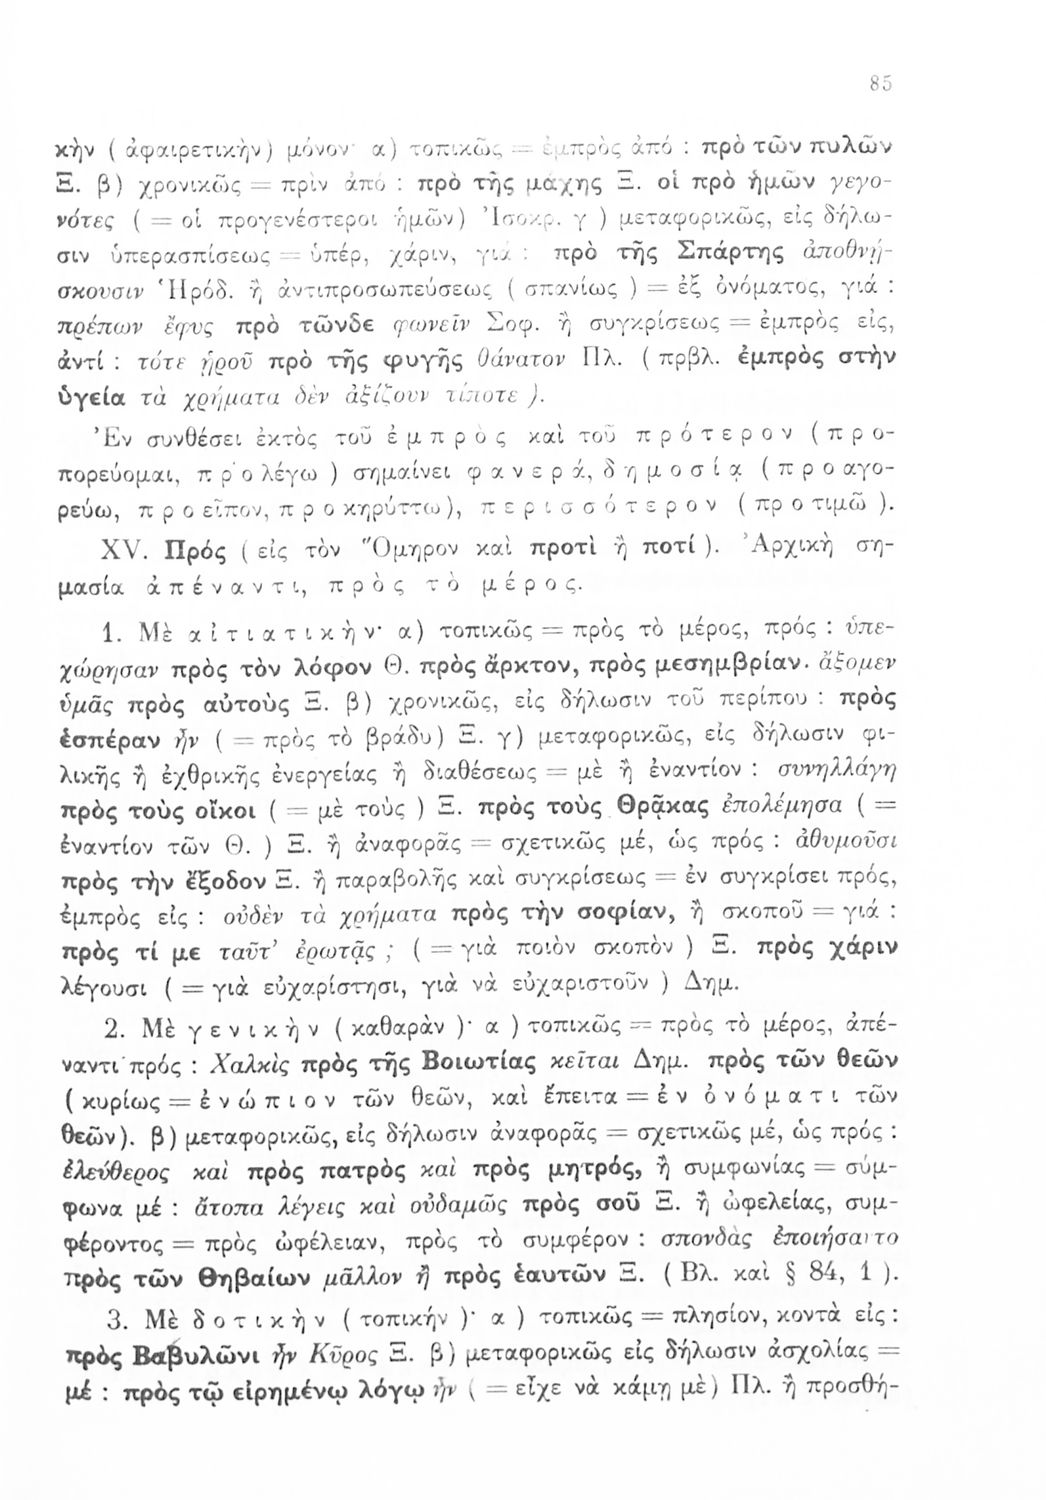 85
κὴν ( ἀφαιρετικὴν ) μόνον· α) τοπικῶς = ἐμπρὸς ἀπό : πρὸ τῶν πυλῶν
Ξ. β) χρονικῶς = πρὶν ἀπό : πρὸ τῆς μάχης Ξ. οἱ πρὸ ἡμῶν γεγο-
νότες ( = οἱ προγενέστεροι ἡμῶν) Ἰσοκρ. γ ) μεταφορικῶς, εἰς δήλω-
σιν ὑπερασπίσεως = ὑπέρ, χάριν, γιά : πρὸ τῆς Σπάρτης ἀποθνῄ-
σκουσιν Ἡρόδ. ἢ ἀντιπροσωπεύσεως ( σπανίως ) = ἐξ ὀνόματος, γιά :
πρέπων ἔφυς πρὸ τῶνδε φωνεῖν Σοφ. ἢ συγκρίσεως = ἐμπρὸς εἰς,
ἀντί : τότε ᾑροῦ πρὸ τῆς φυγῆς θάνατον Πλ. ( πρβλ. ἐμπρὸς στὴν
ὑγεία τὰ χρήματα δὲν ἀξίζουν τίποτε ).
Ἐν συνθέσει ἐκτὸς τοῦ ἐ μ π ρ ὸ ς καὶ τοῦ π ρ ό τ ε ρ ο ν ( π ρ ο-
πορεύομαι, π ρ ο λέγω ) σημαίνει φ α ν ε ρ ά, δ η μ ο σ ί ᾳ ( π ρ ο αγο-
ρεύω, π ρ ο εῖπον, π ρ ο κηρύττω), π ε ρ ι σ σ ό τ ε ρ ο ν ( πρ ο τιμῶ ).
XV. Πρός ( εἰς τὸν Ὅμηρον καὶ προτὶ ἢ ποτί ). Ἀρχικὴ ση-
μασία ἀ π έ ν α ν τ ι, π ρ ὸ ς τ ὸ μ έ ρ ο ς.
1. Μὲ α ἰ τ ι α τ ι κ ὴ ν· α) τοπικῶς = πρὸς τὸ μέρος, πρός : ὑπε-
χώρησαν πρὸς τὸν λόφον Θ. πρὸς ἄρκτον, πρὸς μεσημβρίαν· ἄξομεν
ὑμᾶς πρὸς αὐτοὺς Ξ. β) χρονικῶς, εἰς δήλωσιν τοῦ περίπου : πρὸς
ἑσπέραν ἦν ( = πρὸς τὸ βράδυ) Ξ. γ) μεταφορικῶς, εἰς δήλωσιν φι-
λικῆς ἢ ἐχθρικῆς ἐνεργείας ἢ διαθέσεως = μὲ ἢ ἐναντίον : συνηλλάγη
πρὸς τοὺς οἴκοι ( = μὲ τοὺς ) Ξ. πρὸς τοὺς Θρᾷκας ἐπολέμησα ( =
ἐναντίον τῶν Θ. ) Ξ. ἢ ἀναφορᾶς = σχετικῶς μέ, ὡς πρός : ἀθυμοῦσι
πρὸς τὴν ἔξοδον Ξ. ἢ παραβολῆς καὶ συγκρίσεως = ἐν συγκρίσει πρός,
ἐμπρὸς εἰς : οὐδὲν τὰ χρήματα πρὸς τὴν σοφίαν, ἢ σκοποῦ = γιά :
πρὸς τί με ταῦτ’ ἐρωτᾷς ; ( = γιὰ ποιὸν σκοπὸν ) Ξ. πρὸς χάριν
λέγουσι ( = γιὰ εὐχαρίστησι, γιὰ νὰ εὐχαριστοῦν ) Δημ.
2. Μὲ γ ε ν ι κ ὴ ν ( καθαρὰν )· α ) τοπικῶς = πρὸς τὸ μέρος, ἀπέ-
ναντι πρός : Χαλκὶς πρὸς τῆς Βοιωτίας κεῖται Δημ. πρὸς τῶν θεῶν
( κυρίως = ἐ ν ώ π ι ο ν τῶν θεῶν, καὶ ἔπειτα = ἐ ν ὀ ν ό μ α τ ι τῶν
θεῶν). β) μεταφορικῶς, εἰς δήλωσιν ἀναφορᾶς = σχετικῶς μέ, ὡς πρός :
ἐλεύθερος καὶ πρὸς πατρὸς καὶ πρὸς μητρός, ἢ συμφωνίας = σύμ-
φωνα μέ : ἄτοπα λέγεις καὶ οὐδαμῶς πρὸς σοῦ Ξ. ἢ ὠφελείας, συμ-
φέροντος = πρὸς ὠφέλειαν, πρὸς τὸ συμφέρον : σπονδὰς ἐποιήσαντο
πρὸς τῶν Θηβαίων μᾶλλον ἢ πρὸς ἑαυτῶν Ξ. ( Βλ. καὶ § 84, 1 ).
3. Μὲ δ ο τ ι κ ὴ ν ( τοπικήν )· α ) τοπικῶς = πλησίον, κοντὰ εἰς :
πρὸς Βαβυλῶνι ἦν Κῦρος Ξ. β) μεταφορικῶς εἰς δήλωσιν ἀσχολίας =
μέ : πρὸς τῷ εἰρημένῳ λόγῳ ἦν ( = εἶχε νὰ κάμῃ μὲ) Πλ. ἢ προσθή-